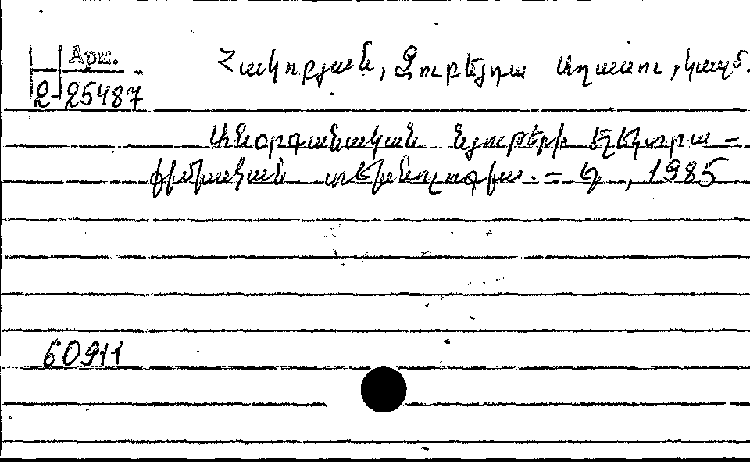 Արտ.
2-25487
Հակոբյան, Զուբեյդա Աղասու, կազմ.
Անօրգանական նյութերի էլեկտրա-
քիմիական տեխնոլոգիա. - Ե, 1985
60911